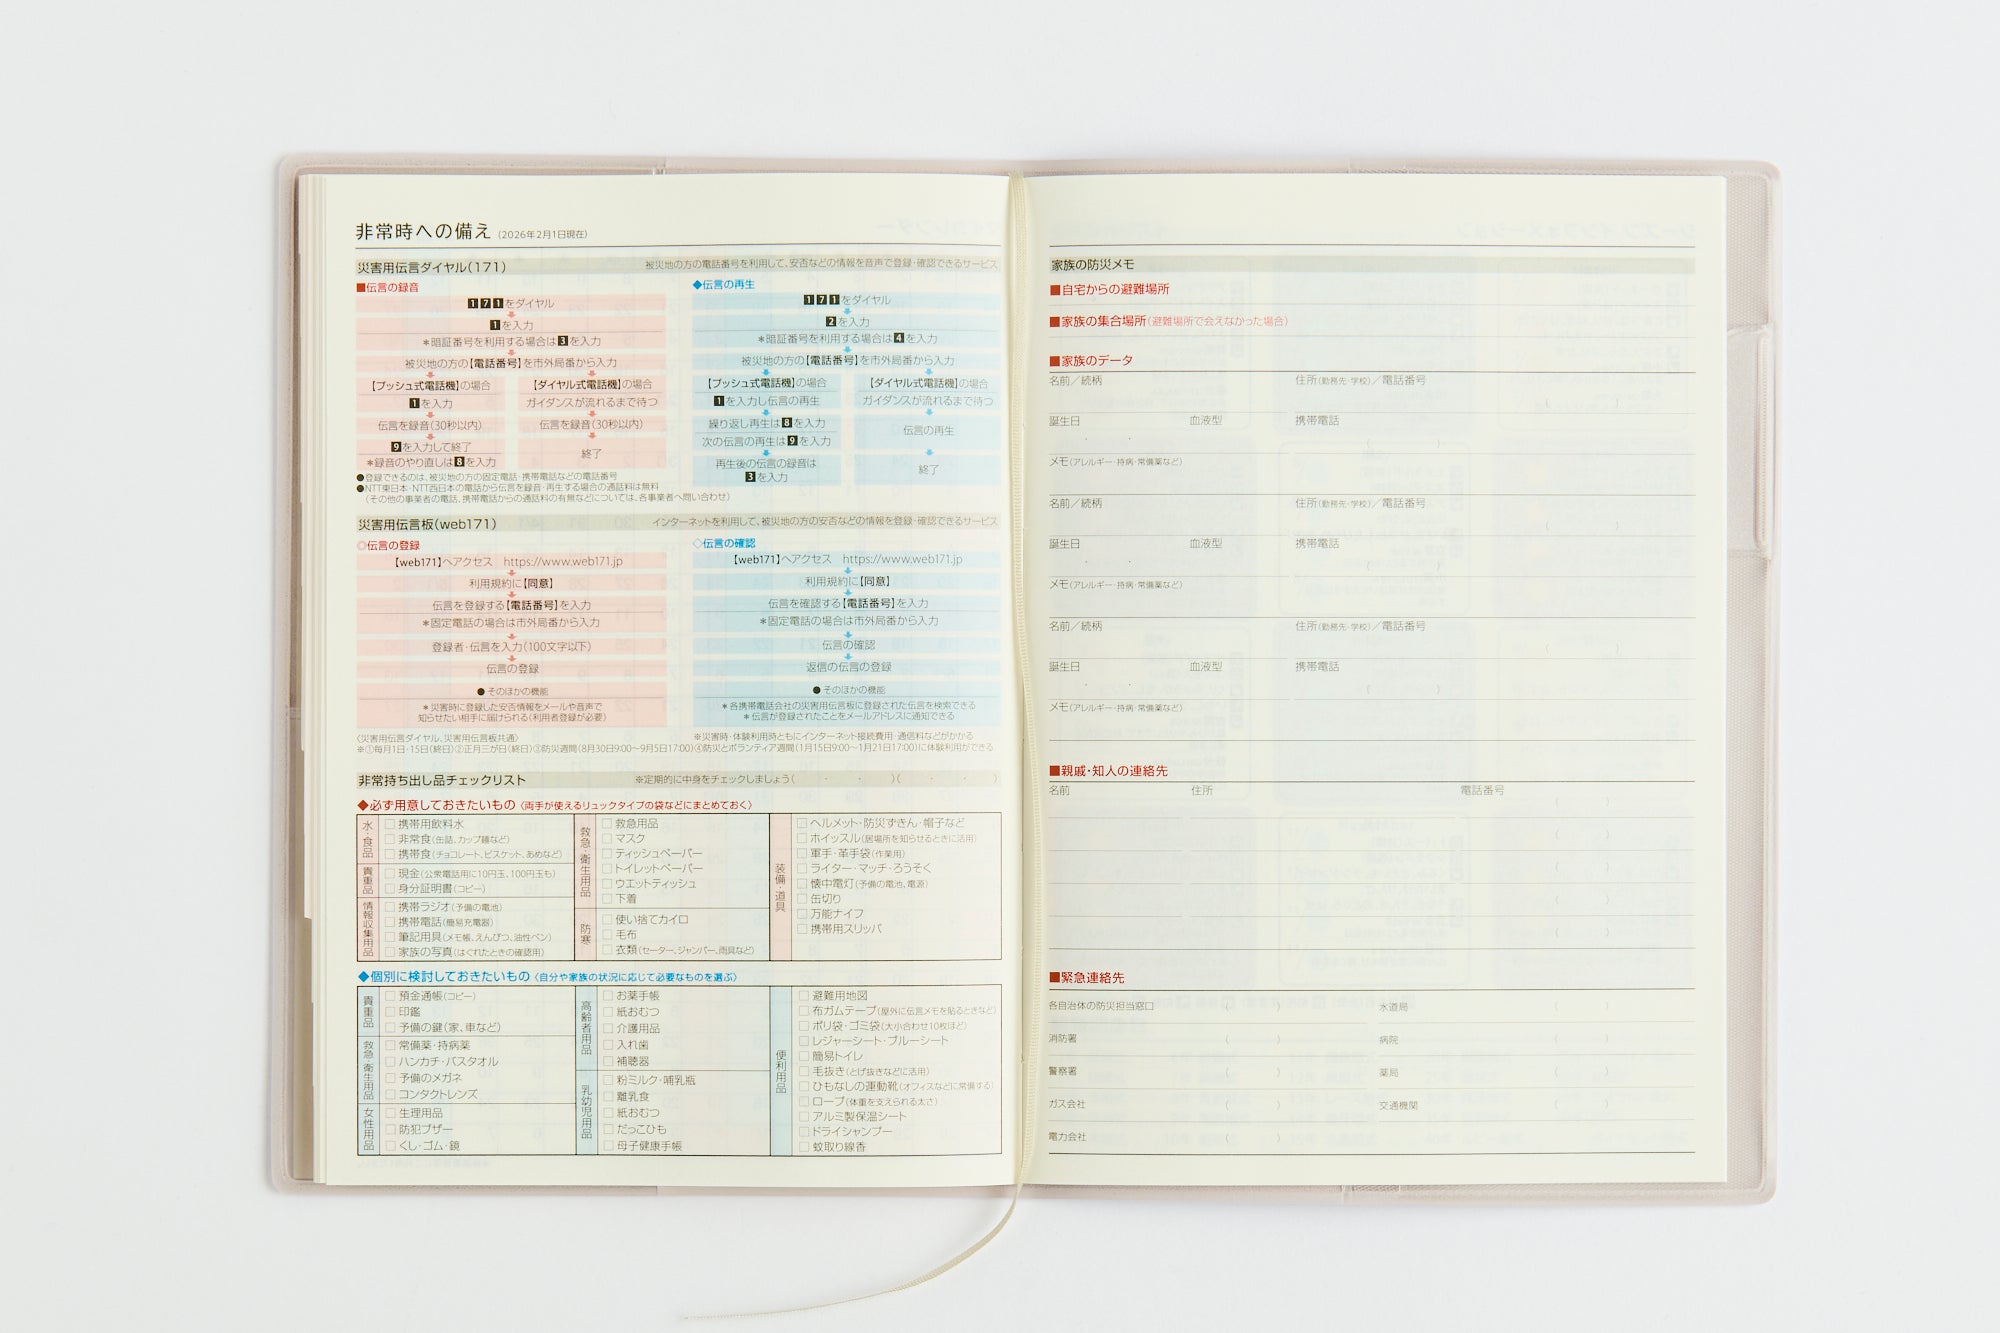 非常時への備え (2026年2月1日現在)
災害用伝言ダイヤル(171) 被災地の方の電話番号を利用して、安否などの情報を音声で登録・確認できるサービス
■伝言の録音
171をダイヤル
1を入力
＊暗証番号を利用する場合は3を入力
被災地の方の【電話番号】を市外局番から入力
【プッシュ式電話機】の場合
1を入力
伝言を録音(30秒以内)
9を入力して終了
＊録音のやり直しは8を入力
【ダイヤル式電話機】の場合
ガイダンスが流れるまで待つ
伝言を録音(30秒以内)
終了
◆伝言の再生
171をダイヤル
2を入力
＊暗証番号を利用する場合は4を入力
被災地の方の【電話番号】を市外局番から入力
【プッシュ式電話機】の場合
1を入力し伝言の再生
繰り返し再生は8を入力
次の伝言の再生は9を入力
再生後の伝言の録音は
3を入力
【ダイヤル式電話機】の場合
ガイダンスが流れるまで待つ
伝言の再生
終了
●登録できるのは、被災地の方の固定電話・携帯電話などの電話番号
●NTT東日本・NTT西日本の電話から伝言を録音・再生する場合の通話料は無料
(その他の事業者の電話、携帯電話からの通話料の有無などについては、各事業者へ問い合わせ)
災害用伝言板(web171) インターネットを利用して、被災地の方の安否などの情報を登録・確認できるサービス
◎伝言の登録
【web171】へアクセス https://www.web171.jp
利用規約に【同意】
伝言を登録する【電話番号】を入力
＊固定電話の場合は市外局番から入力
登録者・伝言を入力(100文字以下)
伝言の登録
●そのほかの機能
＊災害時に登録した安否情報をメールや音声で
知らせたい相手に届けられる(利用者登録が必要)
◇伝言の確認
【web171】へアクセス https://www.web171.jp
利用規約に【同意】
伝言を確認する【電話番号】を入力
＊固定電話の場合は市外局番から入力
伝言の確認
返信の伝言の登録
●そのほかの機能
＊各携帯電話会社の災害用伝言板に登録された伝言を検索できる
＊伝言が登録されたことをメールアドレスに通知できる
〈災害用伝言ダイヤル、災害用伝言板共通〉 ※災害時・体験利用時ともにインターネット接続費用・通信料などがかかる
※①毎月1日・15日(終日)②正月三が日(終日)③防災週間(8月30日9:00〜9月5日17:00)④防災とボランティア週間(1月15日9:00〜1月21日17:00)に体験利用ができる
非常持ち出し品チェックリスト ※定期的に中身をチェックしましょう( ・ ・ )( ・ ・ )
◆必ず用意しておきたいもの〈両手が使えるリュックタイプの袋などにまとめておく〉
水・食品
□携帯用飲料水
□非常食(缶詰、カップ麺など)
□携帯食(チョコレート、ビスケット、あめなど)
貴重品
□現金(公衆電話用に10円玉、100円玉も)
□身分証明書(コピー)
情報収集用品
□携帯ラジオ(予備の電池)
□携帯電話(簡易充電器)
□筆記用具(メモ帳、えんぴつ、油性ペン)
□家族の写真(はぐれたときの確認用)
救急・衛生用品
□救急用品
□マスク
□ティッシュペーパー
□トイレットペーパー
□ウエットティッシュ
□下着
防寒
□使い捨てカイロ
□毛布
□衣類(セーター、ジャンパー、雨具など)
装備・道具
□ヘルメット・防災ずきん・帽子など
□ホイッスル(居場所を知らせるときに活用)
□軍手・革手袋(作業用)
□ライター・マッチ・ろうそく
□懐中電灯(予備の電池、電源)
□缶切り
□万能ナイフ
□携帯用スリッパ
◆個別に検討しておきたいもの〈自分や家族の状況に応じて必要なものを選ぶ〉
貴重品
□預金通帳(コピー)
□印鑑
□予備の鍵(家、車など)
救急・衛生用品
□常備薬・持病薬
□ハンカチ・バスタオル
□予備のメガネ
□コンタクトレンズ
女性用品
□生理用品
□防犯ブザー
□くし・ゴム・鏡
高齢者用品
□お薬手帳
□紙おむつ
□介護用品
□入れ歯
□補聴器
乳幼児用品
□粉ミルク・哺乳瓶
□離乳食
□紙おむつ
□だっこひも
□母子健康手帳
便利用品
□避難用地図
□布ガムテープ(屋外に伝言メモを貼るときなど)
□ポリ袋・ゴミ袋(大小合わせ10枚ほど)
□レジャーシート・ブルーシート
□簡易トイレ
□毛抜き(とげ抜きなどに活用)
□ひもなしの運動靴(オフィスなどに常備する)
□ロープ(体重を支えられる太さ)
□アルミ製保温シート
□ドライシャンプー
□蚊取り線香
家族の防災メモ
■自宅からの避難場所
■家族の集合場所(避難場所で会えなかった場合)
■家族のデータ
名前／続柄 住所(勤務先・学校)／電話番号
( )
誕生日 血液型 携帯電話
・ ・ ( )
メモ(アレルギー・持病・常備薬など)
名前／続柄 住所(勤務先・学校)／電話番号
( )
誕生日 血液型 携帯電話
・ ・ ( )
メモ(アレルギー・持病・常備薬など)
名前／続柄 住所(勤務先・学校)／電話番号
( )
誕生日 血液型 携帯電話
・ ・ ( )
メモ(アレルギー・持病・常備薬など)
■親戚・知人の連絡先
名前 住所 電話番号
( )
( )
( )
( )
( )
■緊急連絡先
各自治体の防災担当窓口 ( ) 水道局 ( )
消防署 ( ) 病院 ( )
警察署 ( ) 薬局 ( )
ガス会社 ( ) 交通機関 ( )
電力会社 ( )